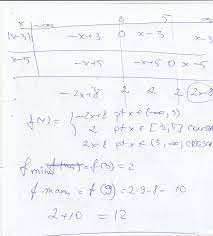 x -∞ 3 5 ∞
|x-3| -x+3 0 x-3 x-3
x-5 -x+5 -x+5 0 x-5
-2x+8 2 2 2 2x-8
f(x) = { -2x+8 pt x ∈ (-∞, 3)
2 pt x ∈ [3, 5]
2x-8 pt x ∈ (5, ∞)
f min = f(3) = 2
f = f(9) = 2·9-8 = 10
2+10 = 12